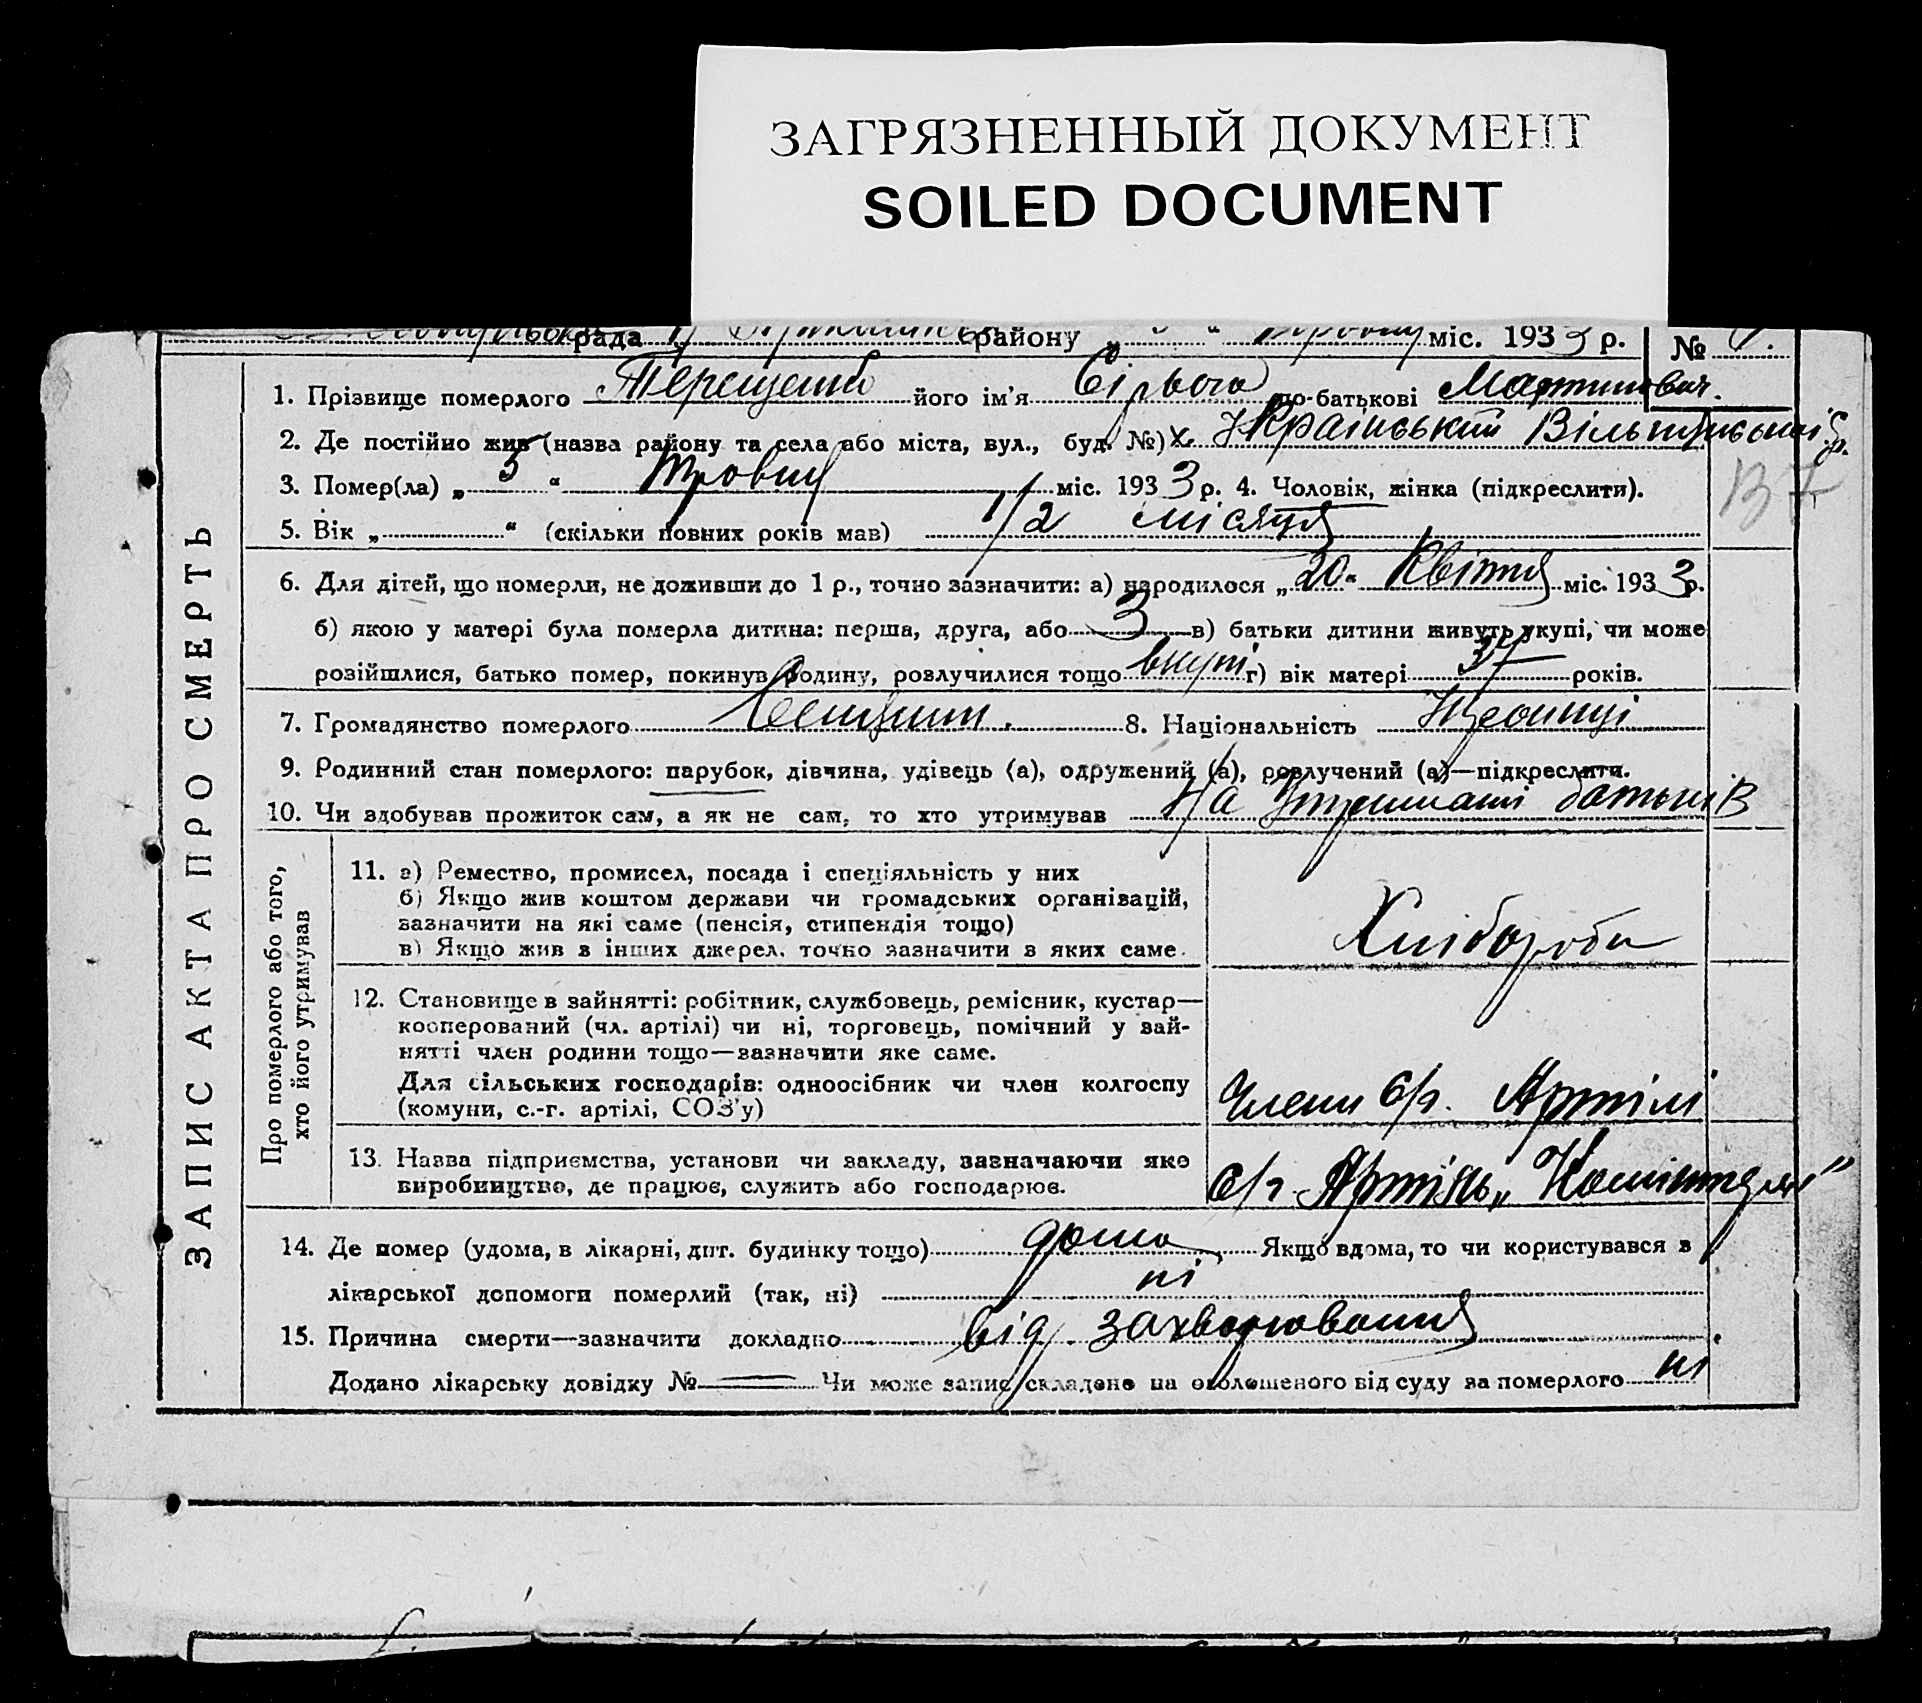 ЗАГРЯЗНЕННЫЙ ДОКУМЕНТ
SOILED DOCUMENT
рада району міс. 1933 р. №
ЗАПИС АКТА ПРО СМЕРТЬ
1. Прізвище померлого Терещенко його ім'я по-батькові Мартинович.
2. Де постійно жив (назва району та села або міста, вул., буд. №) х. Український
3. Помер(ла) „5“ травня міс. 1933 р. 4. Чоловік, жінка (підкреслити).
5. Вік „ “ (скільки повних років мав) 1/2 місяця
6. Для дітей, що померли, не доживши до 1 р., точно зазначити: а) народилося „20“ Квітня міс. 1933 р.
б) якою у матері була померла дитина: перша, друга, або 3 в) батьки дитини живуть укупі, чи може
розійшлися, батько помер, покинув родину, розлучилися тощо вкупі г) вік матері 37 років.
7. Громадянство померлого 8. Національність
9. Родинний стан померлого: парубок, дівчина, удівець (а), одружений (а), розлучений (а)—підкреслити.
10. Чи здобував прожиток сам, а як не сам, то хто утримував На Утриманні батьків
Про померлого або того,
хто його утримував
11. а) Ремество, промисел, посада і спеціяльність у них
б) Якщо жив коштом держави чи громадських організацій,
зазначити на які саме (пенсія, стипендія тощо)
в) Якщо жив з інших джерел, точно зазначити з яких саме.
Хлібороби
12. Становище в зайнятті: робітник, службовець, ремісник, кустар—
кооперований (чл. артілі) чи ні, торговець, помічний у зай-
нятті член родини тощо—зазначити яке саме.
Для сільських господарів: одноосібник чи член колгоспу
(комуни, с.-г. артілі, СОЗ'у)
Члени с/г. Артілі
13. Назва підприємства, установи чи закладу, зазначаючи яке
виробництво, де працює, служить або господарює.
с/г. Артіль „Комінтерн”
14. Де помер (удома, в лікарні, дит. будинку тощо) дома Якщо вдома, то чи користувався з
лікарської допомоги померлий (так, ні) ні
15. Причина смерти—зазначити докладно від захворювання
Додано лікарську довідку № — Чи може запис складено на оголошеного від суду за померлого ні